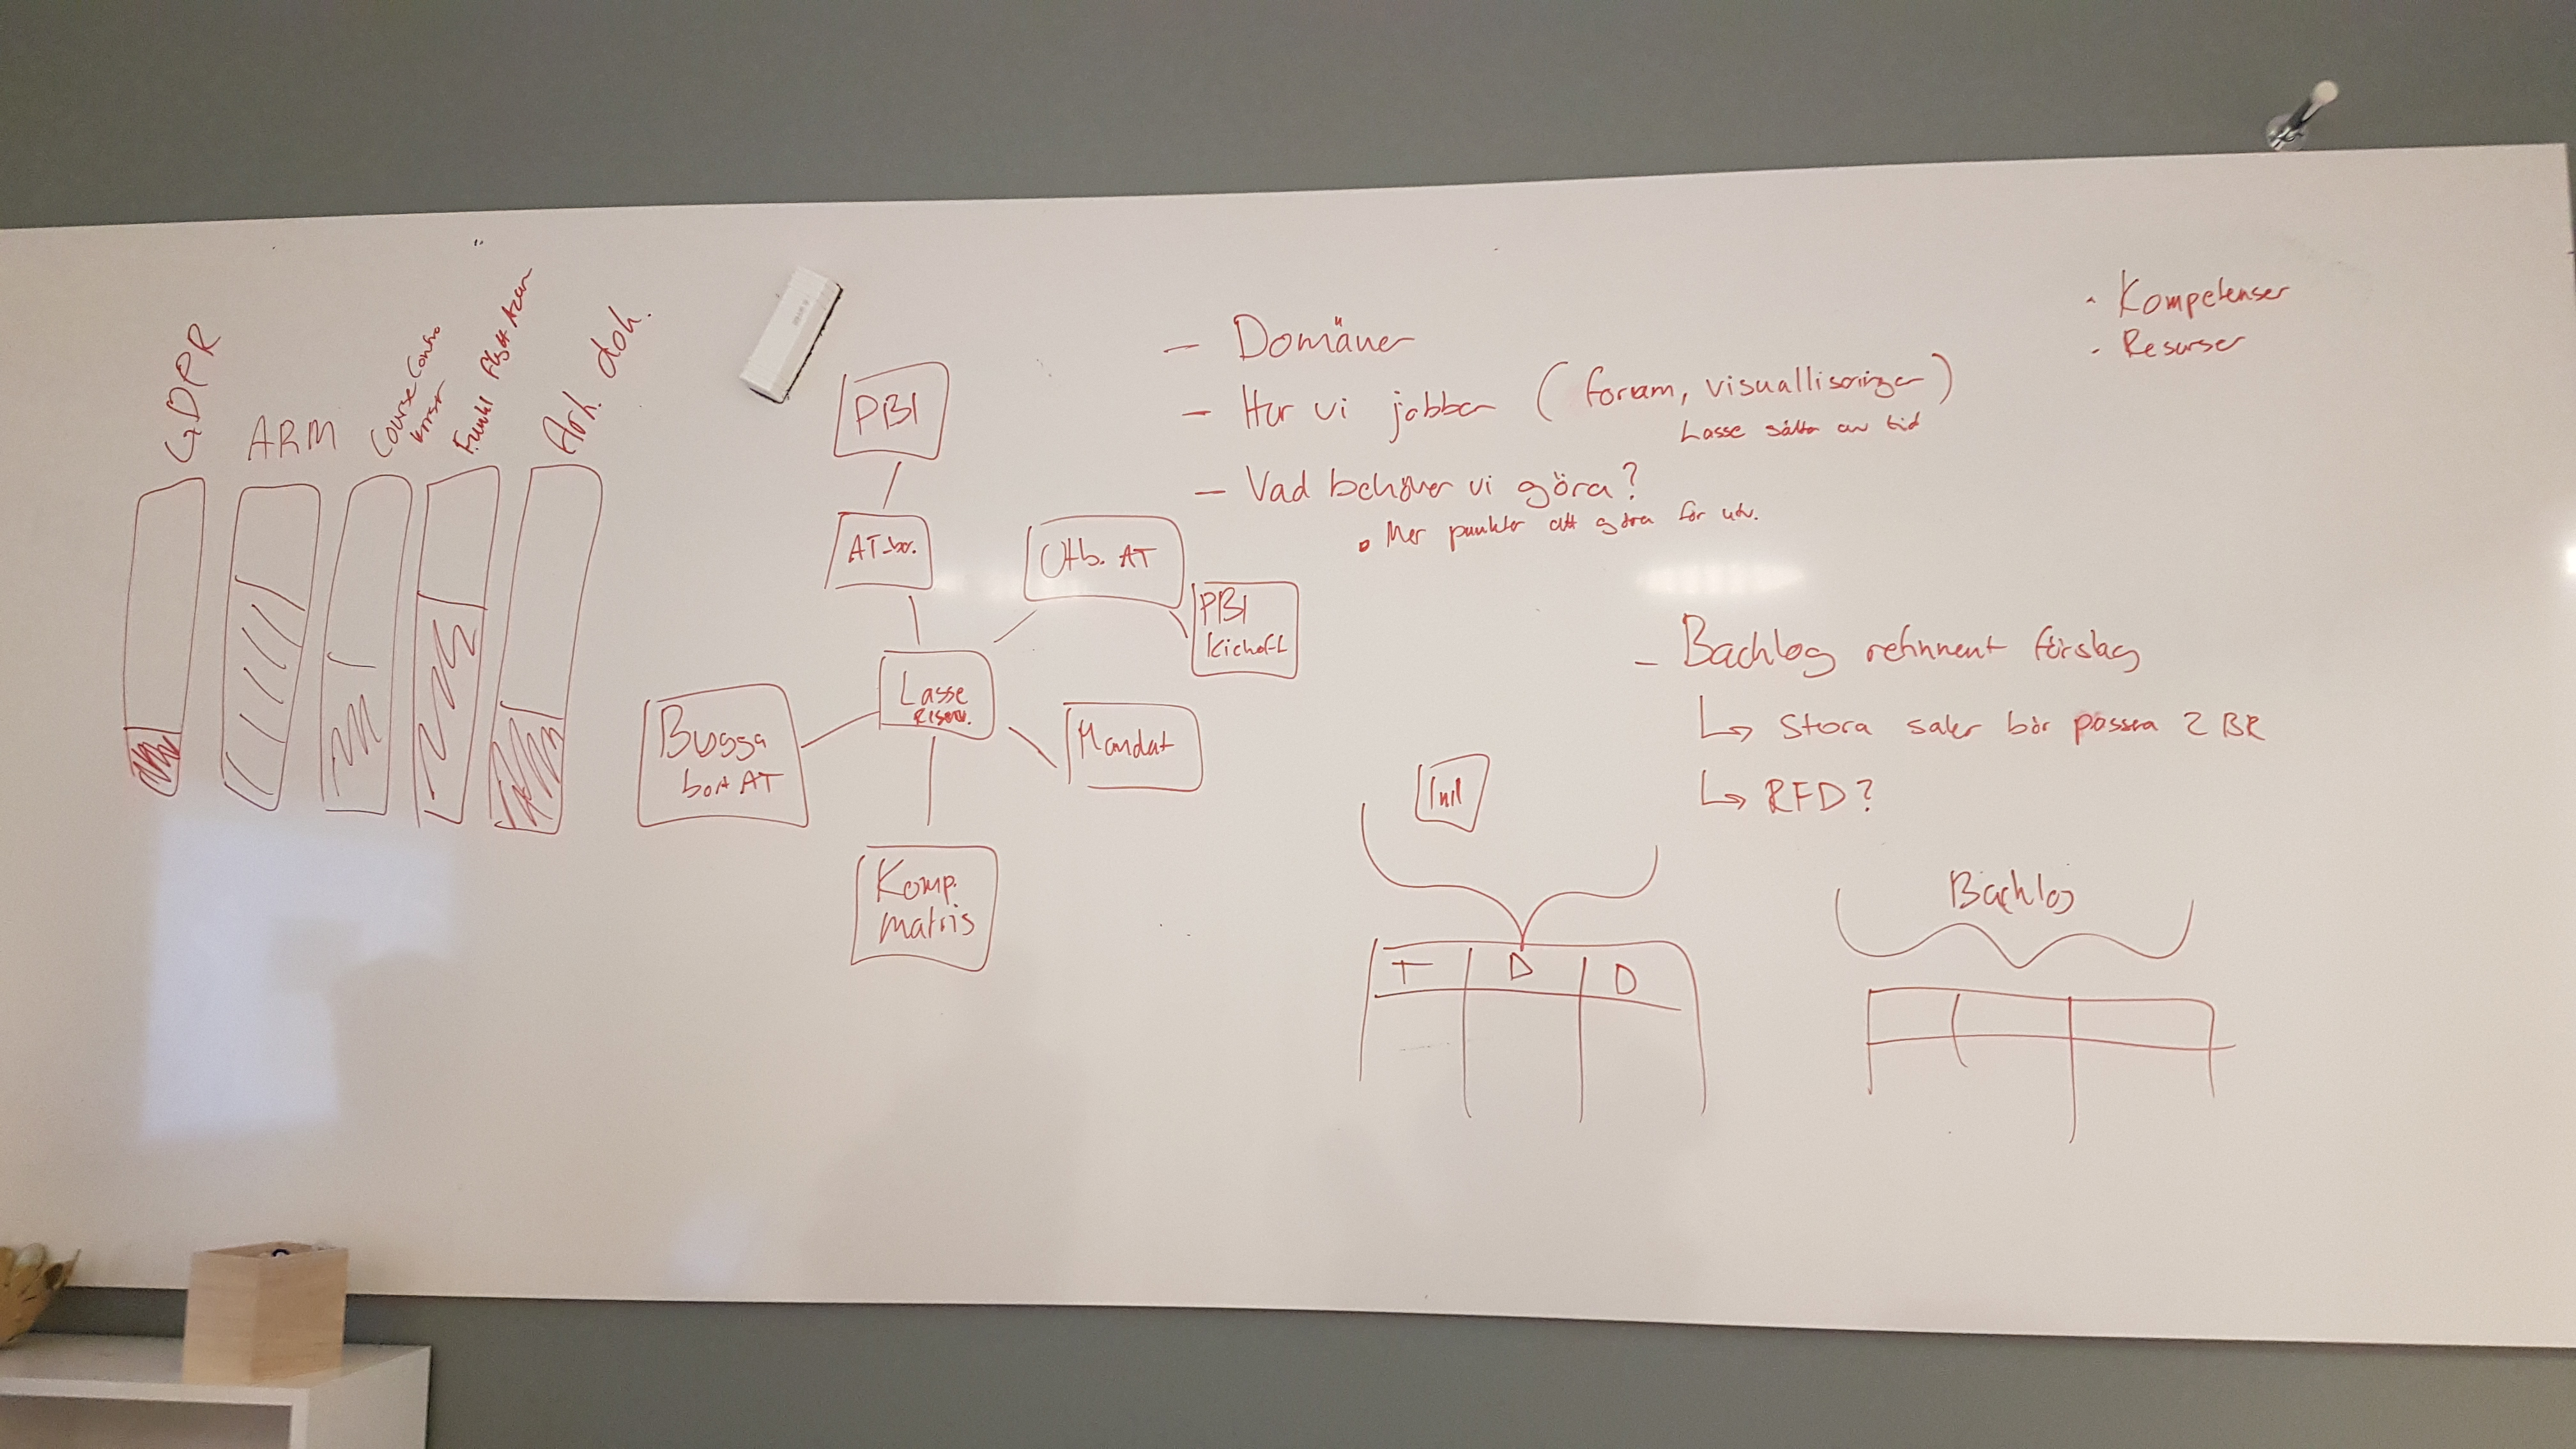 GDPR
ARM
Course
Ark. dok.
PBI
AT-
Utb. AT
PBI
Kickoff
Lasse
Bygga
bort AT
Mandat
Komp.
matris
- Domäner
- Hur vi jobbar (forum, visualliseringar)
Lasse sätta av tid
- Vad behöver vi göra?
• Mer punkter att göra för utv.
· Kompetenser
· Resurser
- Backlog refinment förslag
↳ Stora saker bör passera 2 BR
↳ RFD?
T D D
Backlog